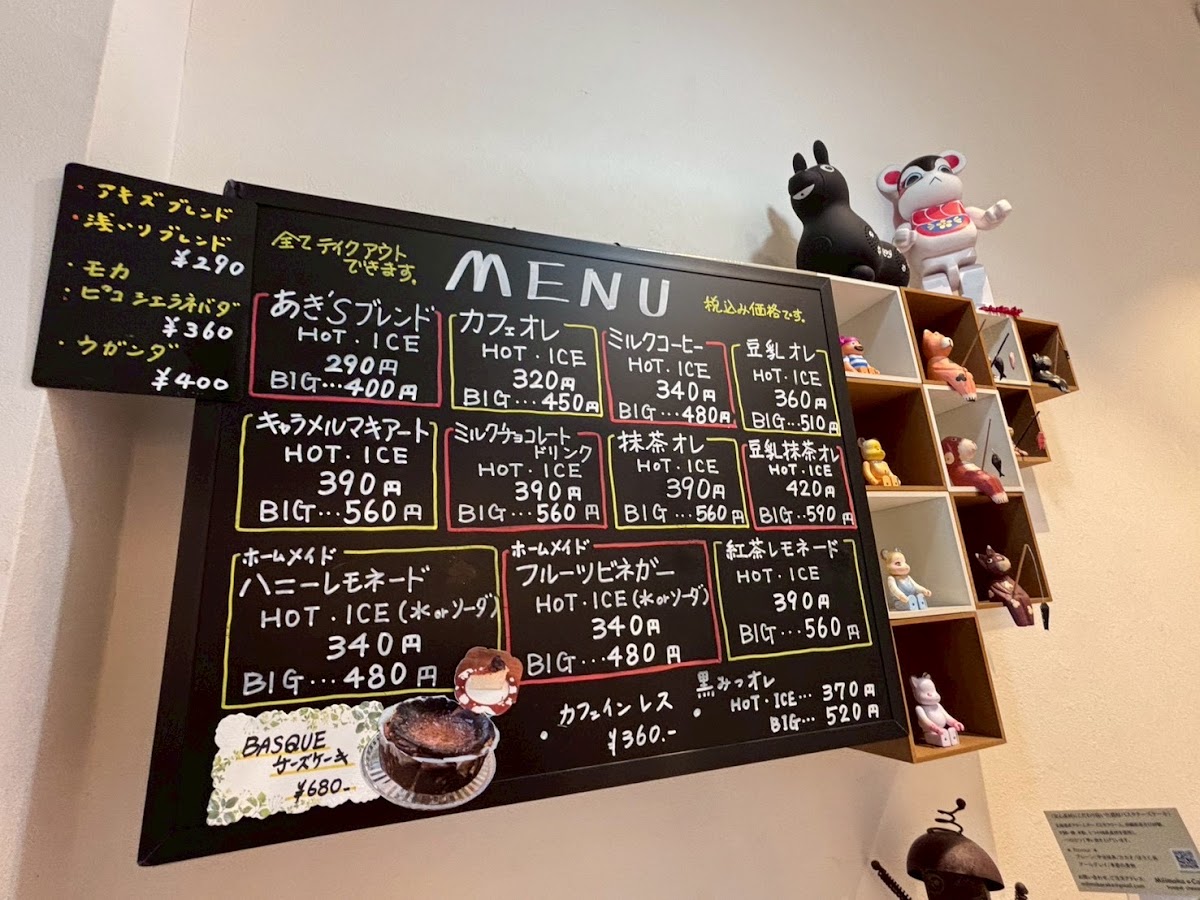 ・アキズブレンド
・浅いりブレンド
¥290
・モカ
・ピコ シエラネバダ
¥360
・ウガンダ
¥400
全てテイクアウト
できます。
MENU
税込み価格です。
あぎ'Sブレンド
HOT・ICE
290円
BIG…400円
カフェオレ
HOT・ICE
320円
BIG…450円
ミルクコーヒー
HOT・ICE
340円
BIG…480円
豆乳オレ
HOT・ICE
360円
BIG…510円
キャラメルマキアート
HOT・ICE
390円
BIG…560円
ミルクチョコレート
ドリンク
HOT・ICE
390円
BIG…560円
抹茶オレ
HOT・ICE
390円
BIG…560円
豆乳抹茶オレ
HOT・ICE
420円
BIG…590円
ホームメイド
ハニーレモネード
HOT・ICE(水orソーダ)
340円
BIG…480円
ホームメイド
フルーツビネガー
HOT・ICE(水orソーダ)
340円
BIG…480円
紅茶レモネード
HOT・ICE
390円
BIG…560円
BASQUE
チーズケーキ
¥680-
・カフェインレス
¥360.-
・黒みつオレ
HOT・ICE…370円
BIG…520円